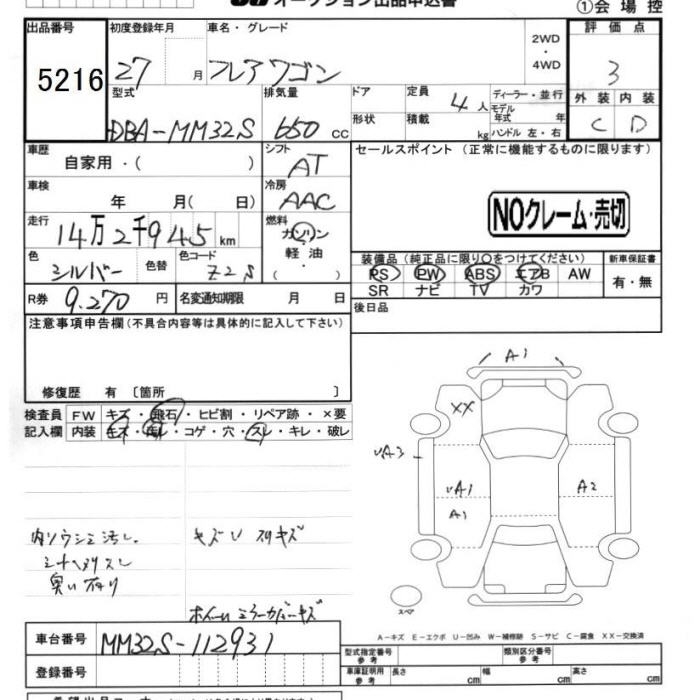 オークション出品申込書
①会場控
出品番号 初度登録年月 車名・グレード 2WD・4WD 評価点
5216 27 月 フレアワゴン 3
型式 排気量 ドア 定員 4人 ディーラー・並行 外装 内装
DBA-MM32S 650 cc 形状 積載 kg モデル年式 年 ハンドル 左・右 C D
車歴 シフト セールスポイント (正常に機能するものに限ります)
自家用・( ) AT
車検 冷房
年 月( 日) AAC NOクレーム・売切
走行 燃料
14万2千945 km ガソリン
色 色替 色コード 軽油・( ) 装備品(純正品に限り○をつけてください) 新車保証書
シルバー Z2S PS PW ABS エアB AW 有・無
SR ナビ TV カワ
R券 9.270 円 名変通知期限 月 日 後日品
注意事項申告欄(不具合内容等は具体的に記入して下さい)
修復歴 有〔箇所 〕
検査員 FW キズ・飛石・ヒビ割・リペア跡・×要
記入欄 内装 キズ・ヨゴレ・コゲ・穴・スレ・キレ・破レ
A1
XX
UA3
UA1 A2
A1
内ソウシミ汚し、 キズU スリキズ
シートヘタリスレ
臭い有り
ホイールミラーカバーキズ
スペア
A-キズ E-エクボ U-凹み W-補修跡 S-サビ C-腐食 XX-交換済
車台番号 MM32S-112931
型式指定番号 参考 類別区分番号 参考
登録番号 車庫証明用 参考 長さ cm 幅 cm 高さ cm
希望出品コーナー